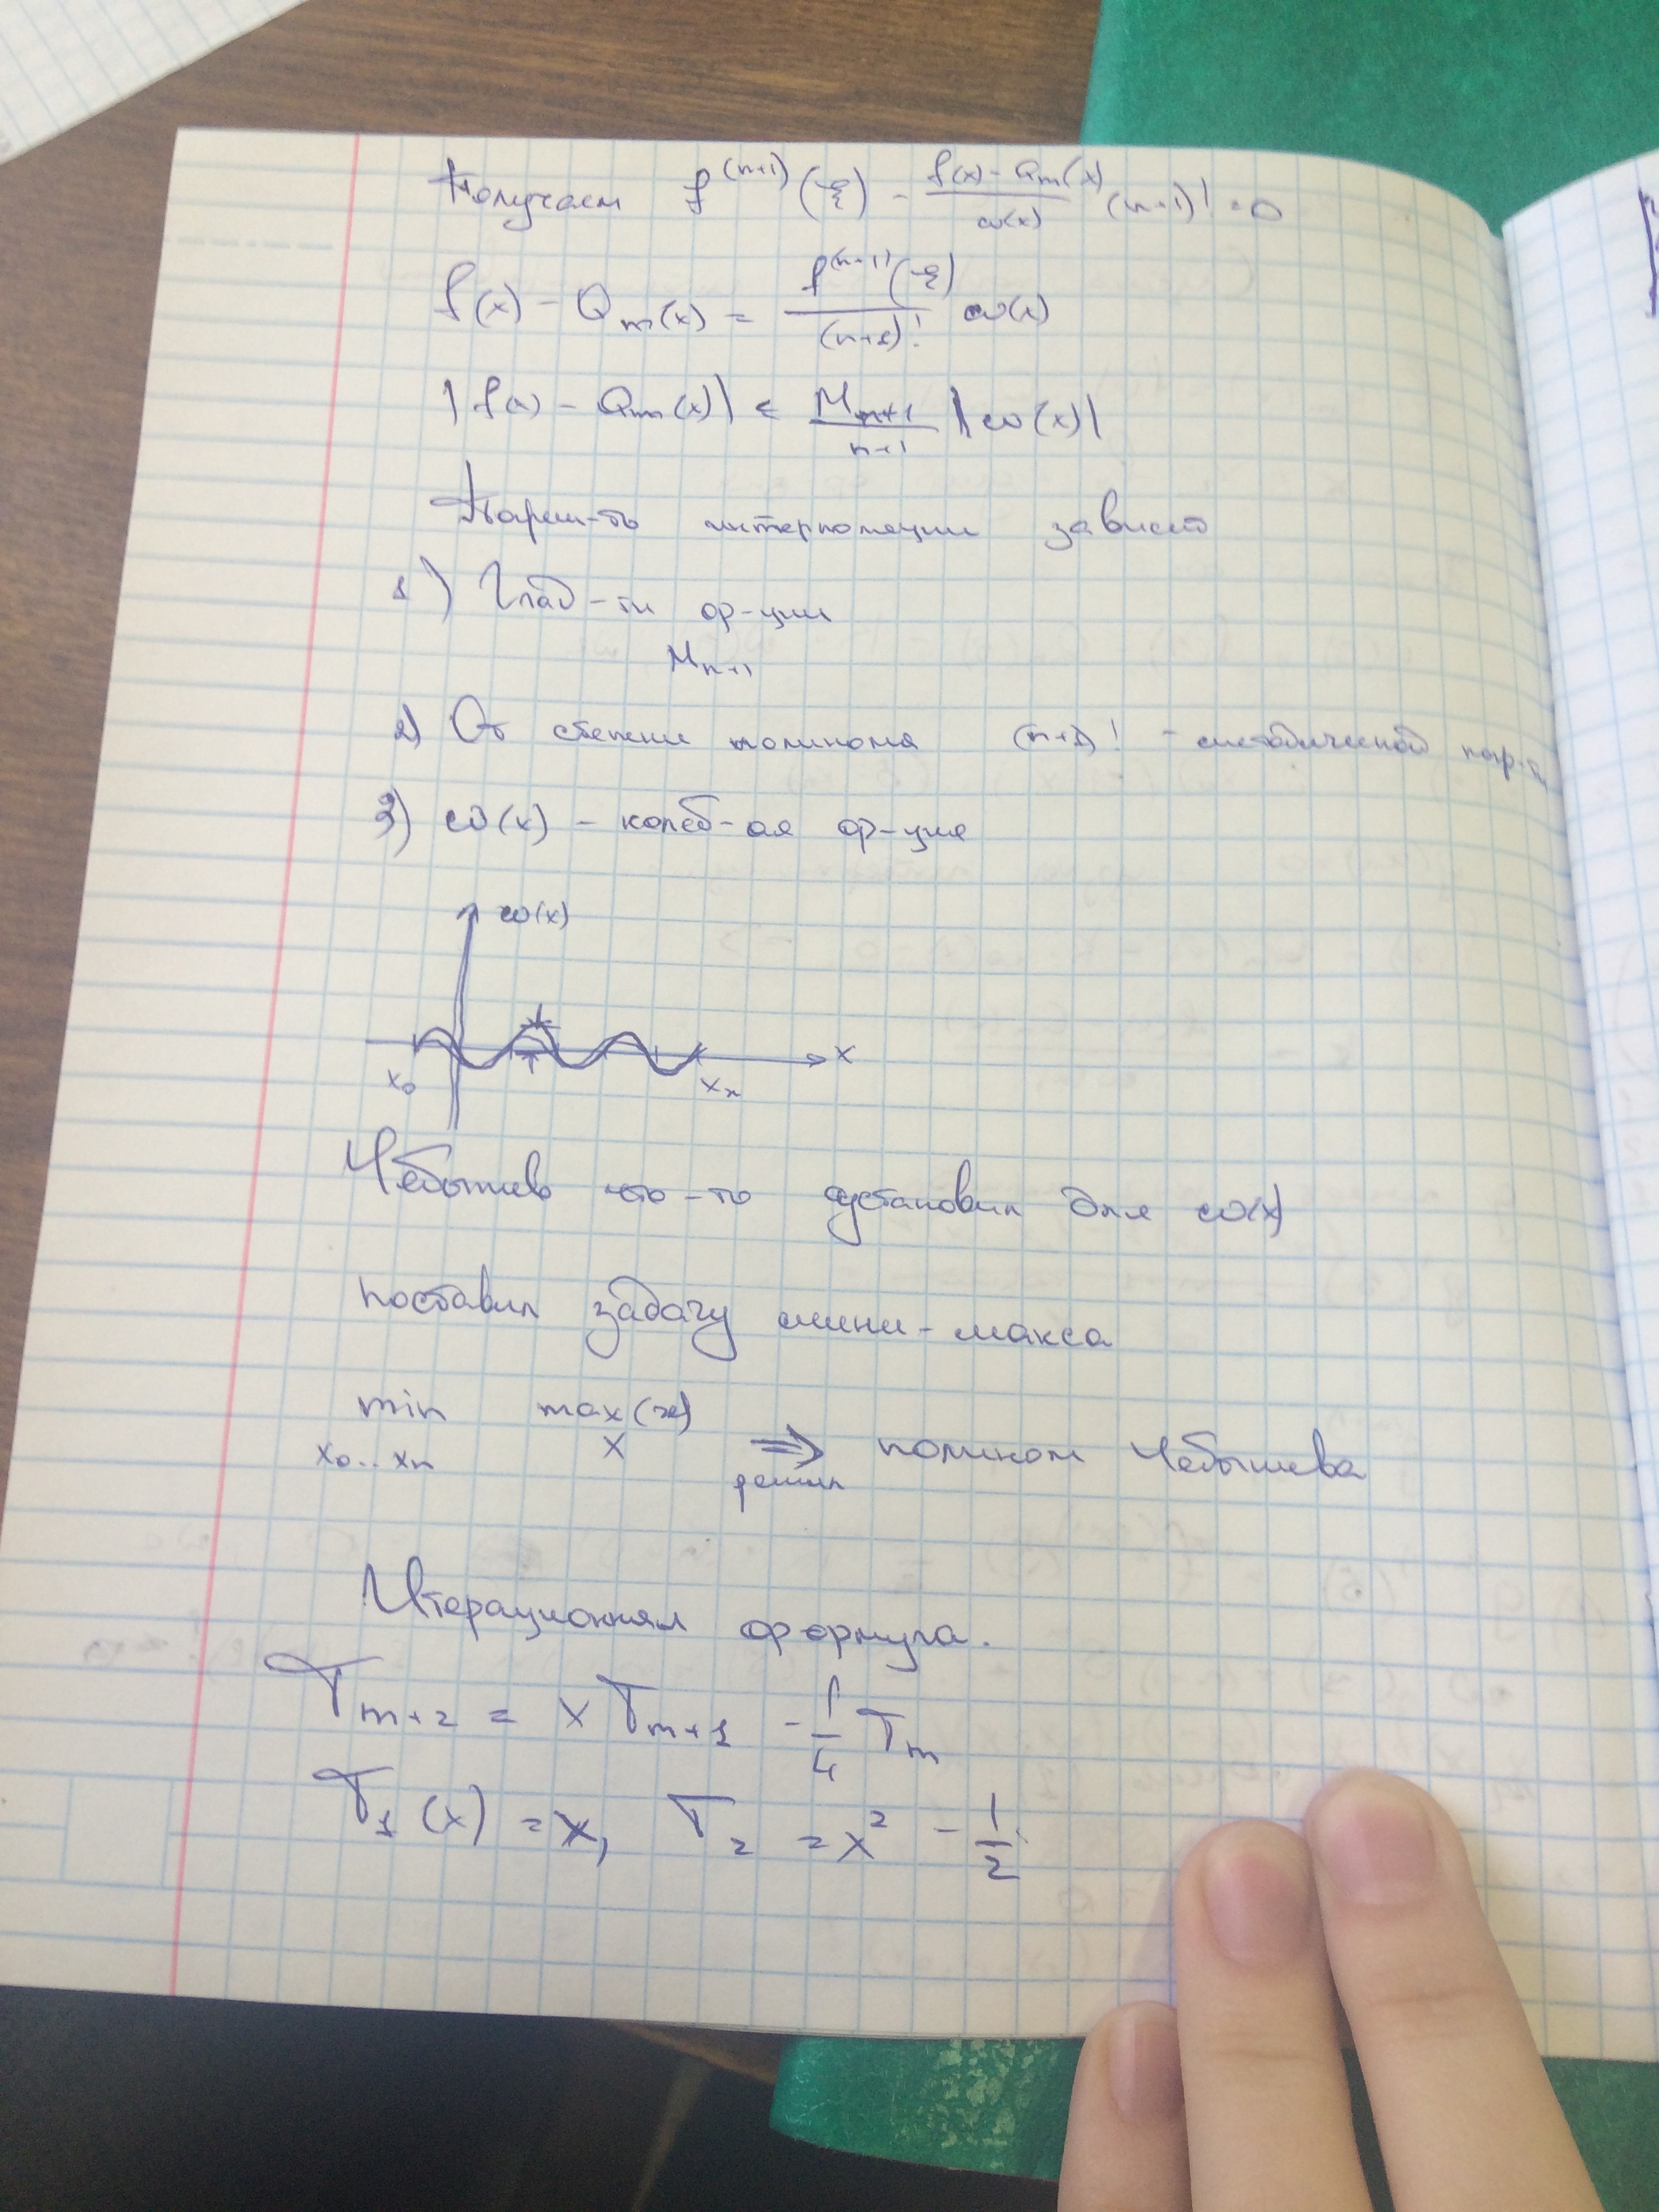 Получаем f^(n+1)(ξ) - (f(x) - Qm(x))/ω(x) (n+1)! = 0
f(x) - Qm(x) = f^(n+1)(ξ)/(n+1)! ω(x)
|f(x) - Qm(x)| ≤ M_{n+1}/n+1 |ω(x)|
интерполяции зависит
1) Глад-ти ф-ции
M_{n+1}
2) От степени полинома (n+1)! - методической погр-ти
3) ω(x) - колеб-ая ф-ция
ω(x)
x
x₀ xₙ
Чебышев что-то установил для ω(x)
поставил задачу мини-макса
min max(x) ⇒ полином Чебышева
x₀..xₙ x решил
Итерационная формула.
T_{m+2} = x T_{m+1} - 1/4 T_m
T₁(x) = x, T₂ = x² - 1/2